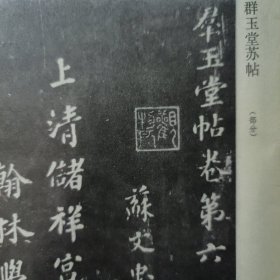 群玉堂苏帖
（部分）
羣玉堂帖卷第六
蘇文忠
上清儲祥宮
翰林學